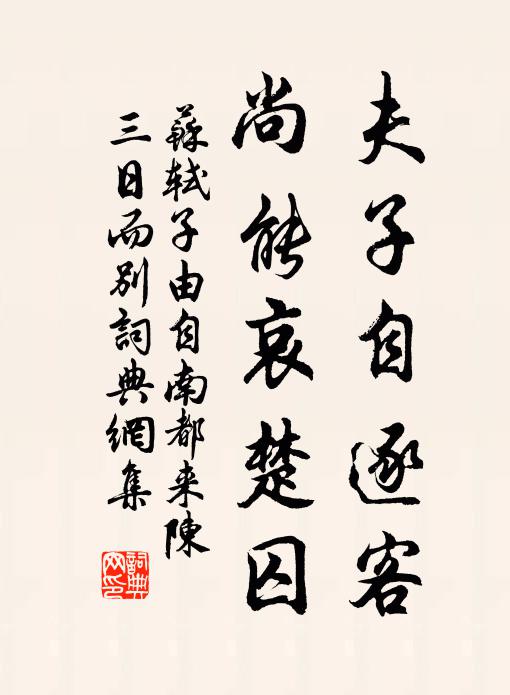 夫子自逐客
尚能哀楚囚
蘇軾子由自南都来陳
三日而別詞典網集
詞典
网印